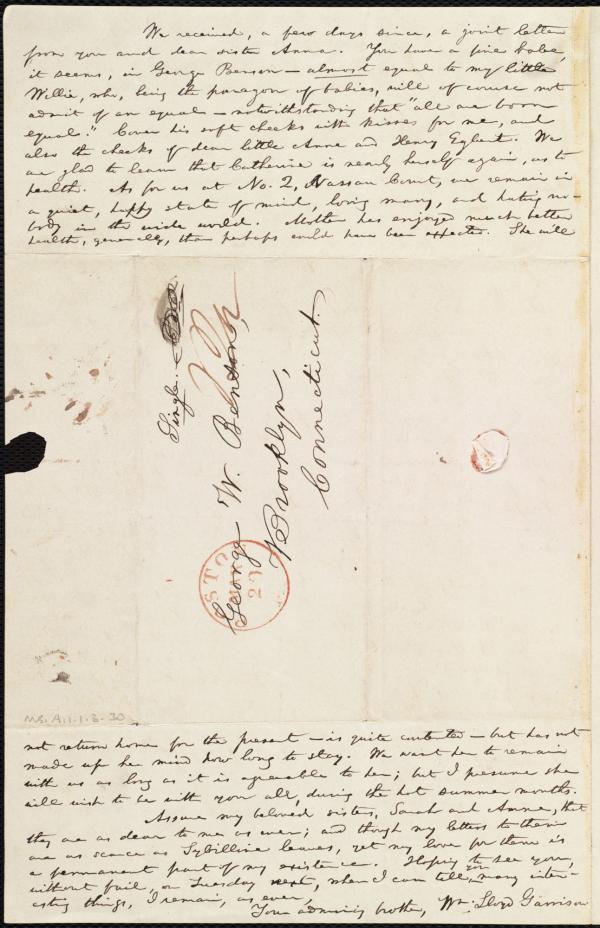 We received, a few days since, a joint letter
from you and dear sister Anna. You have a fine babe,
it seems, in George Benson — almost equal to my little
Willie, who, being the paragon of babies, will of course not
admit of an equal — notwithstanding that "all are born
equal." Cover his soft cheeks with kisses for me, and
also the cheeks of dear little Anne and Henry Egbert. We
are glad to learn that Catherine is nearly herself again, as to
health. As for us at No. 2, Nassau Court, we remain in
a quiet, happy state of mind, loving many, and hating no-
body in the wide world. Mother has enjoyed much better
health, generally, than perhaps could have been expected. She will
Single.
George W. Benson,
Brooklyn,
Connecticut.
STO
20
Ms. A.1.1.2.30
not return home for the present — is quite contented — but has not
made up her mind how long to stay. We want her to remain
with us as long as it is agreeable to her; but I presume she
will wish to be with you all, during the hot summer months.
Assure my beloved sisters, Sarah and Anna, that
they are as dear to me as ever; and though my letters to them
are as scarce as Sybilline leaves, yet my love for them is
a permanent part of my existence. Hoping to see you,
without fail, on Tuesday next, when I can tell you many inter-
esting things, I remain, as ever,
Your admiring brother, Wm. Lloyd Garrison